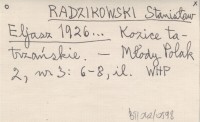 RADZIKOWSKI Stanisław
Eljasz 1926... Kozice ta-
trzańskie. — Młody Polak
2, nr 3: 6-8, il. WHP